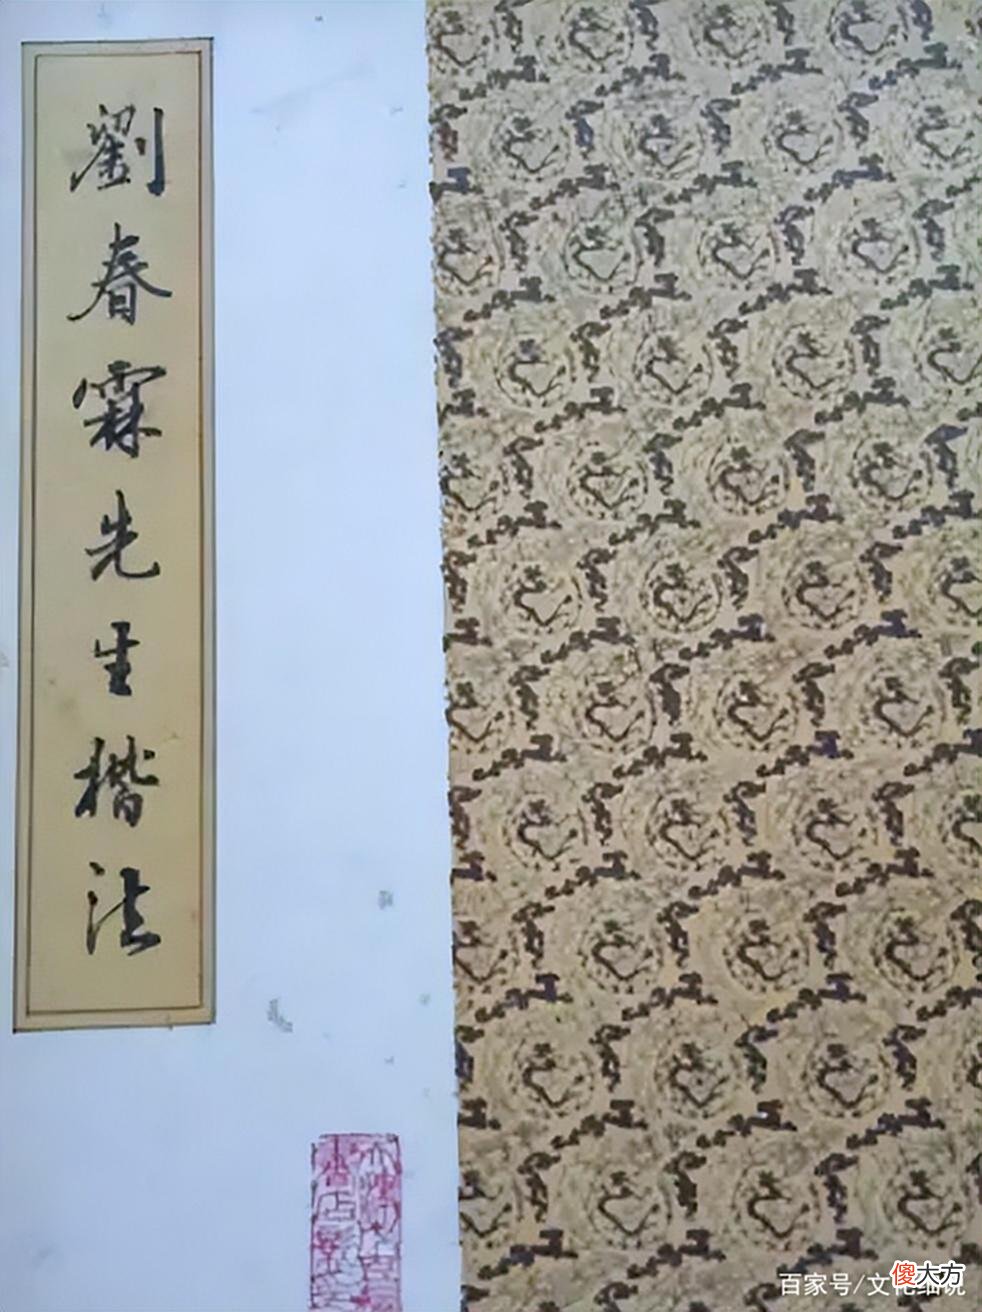 劉春霖先生楷法
百家号/文化细说
傻大方